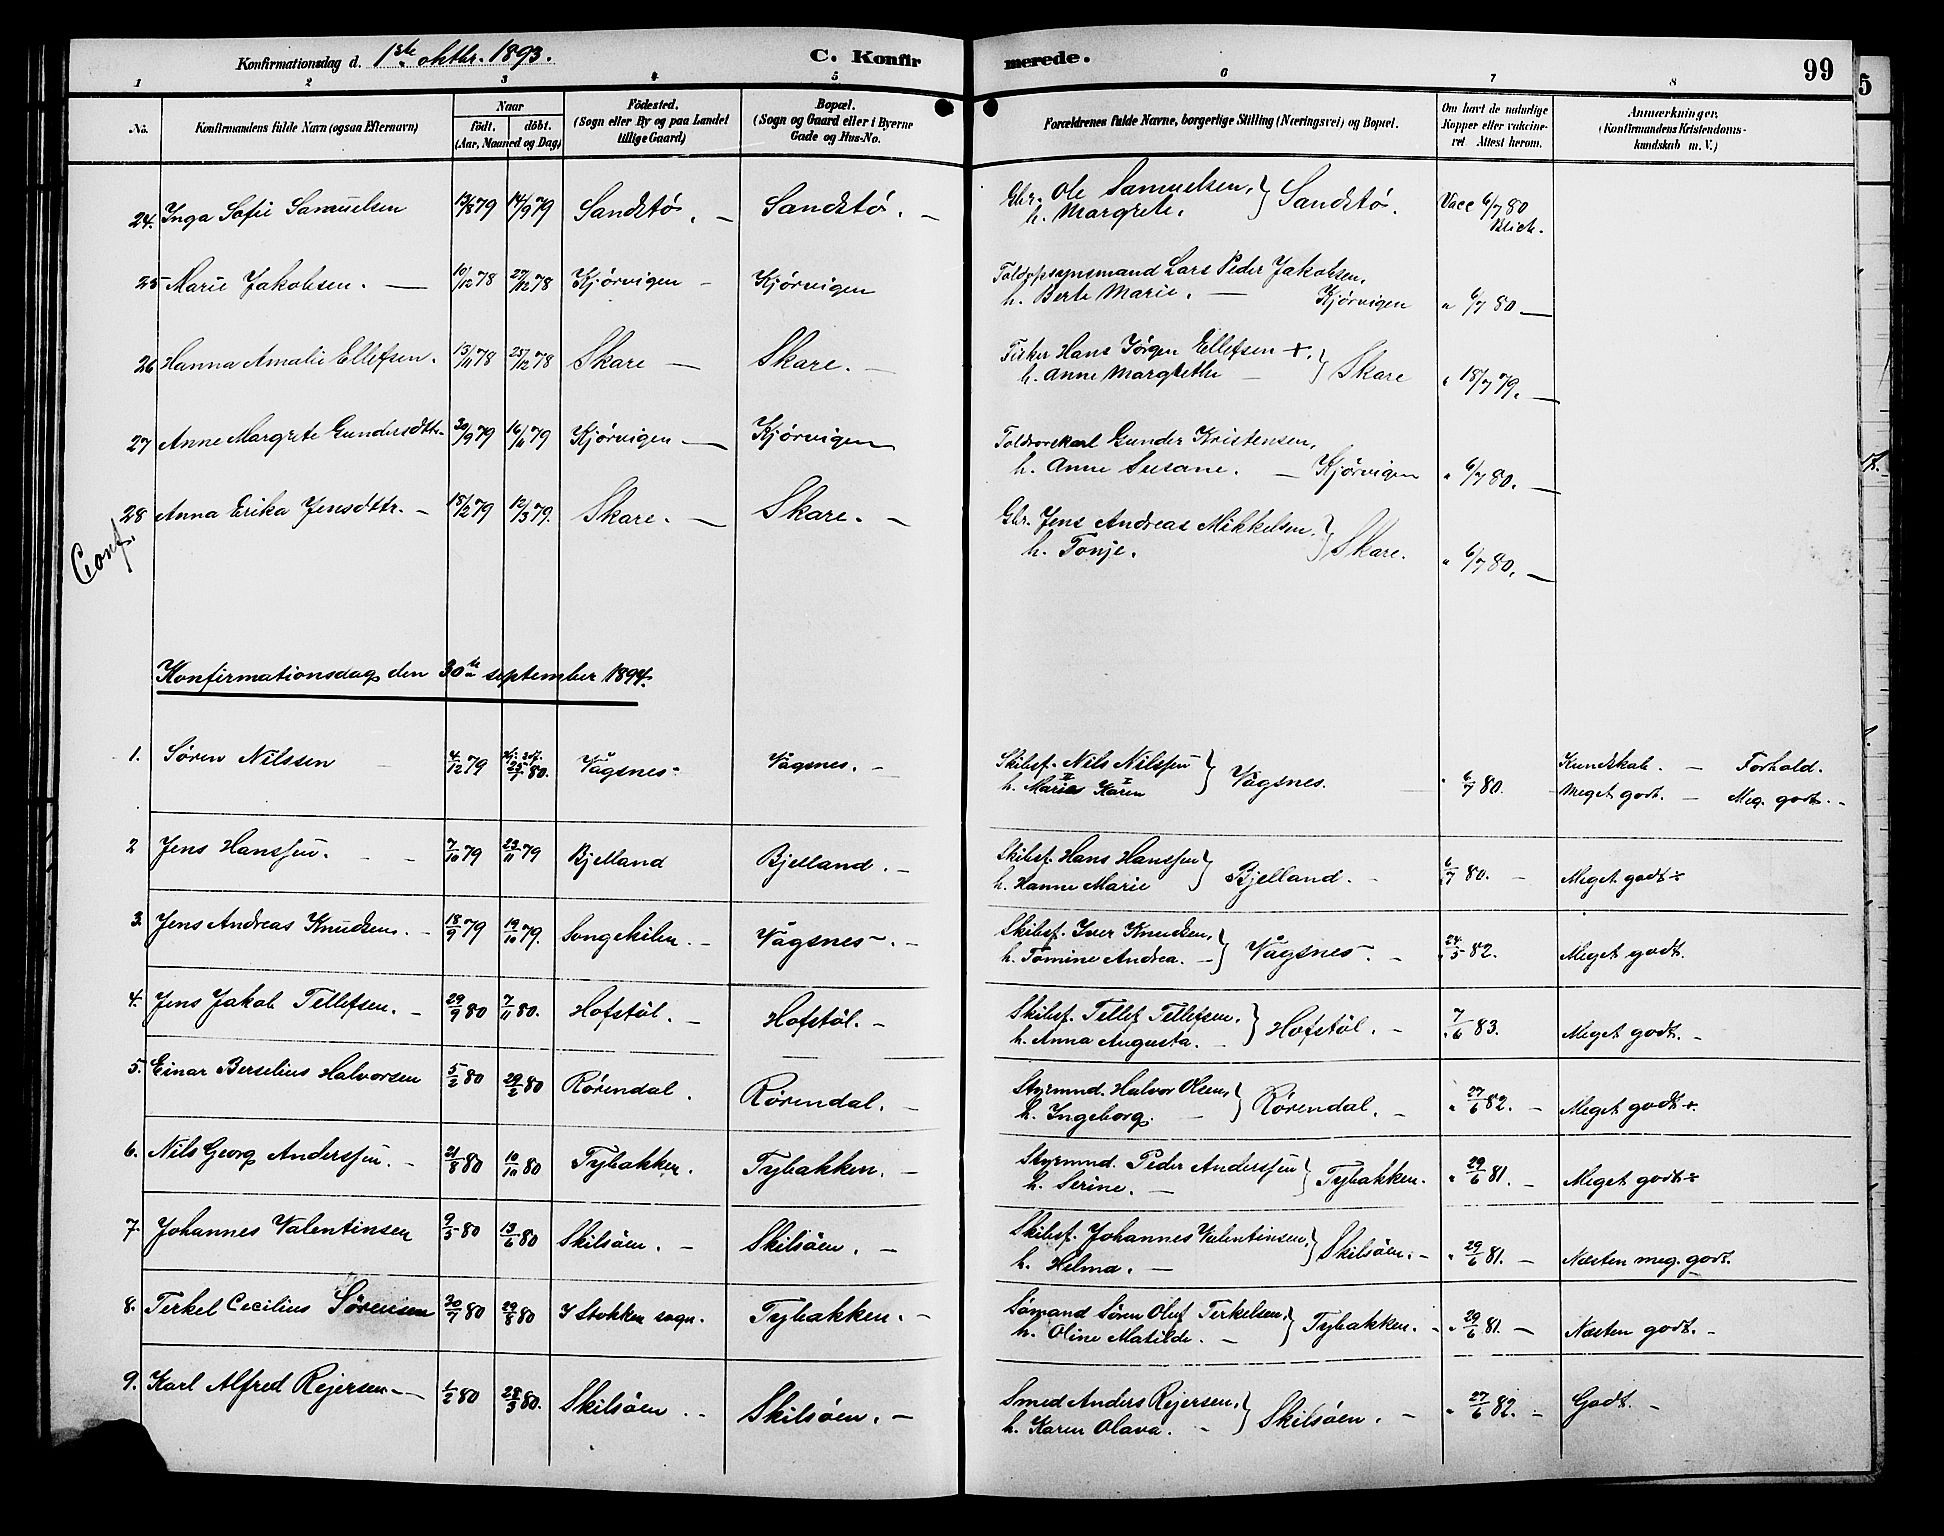 Konfirmationsdag d. 1ste oktbr. 1893. C. Konfirmerede. 99
1 2 3 4 5 6 7 8
No. Konfirmandens fulde Navn (ogsaa Efternavn) Naar født, døbt. (Aar, Maaned og Dag) Fødested. (Sogn eller By og paa Landet tillige Gaard) Bopæl. (Sogn og Gaard eller i Byerne Gade og Hus-No. Forældrenes fulde Navne, borgerlige Stilling (Næringsvei) og Bopæl. Om havt de naturlige Kopper eller vakcineret Attest herom. Anmærkninger. (Konfirmandens Kristendomskundskab m. V.)
24. Inga Sofie Samuelsen 13/8 79 14/9 79 Sandstø. — Sandstø. — Gbr. Ole Samuelsen, h. Margrete. } Sandstø. Vacc 6/7 80 Blich.
25 Marie Jakobsen. — 10/12 78 27/12 78 Kjørvigen — Kjørvigen Toldopsynsmand Lars Peder Jakobsen, h. Berte Marie. — Kjørvigen " 6/7 80 —
26 Hanna Amalie Ellefsen. 13/11 78 25/12 78 Skare — Skare. — Fisker Hans Jørgen Ellefsen +. h. Anne Margrethe — } Skare " 18/7 79. —
27 Anne Margrete Gundersdttr. 20/9 79 16/11 79 Kjørvigen — Kjørvigen Toldroerskarl Gunder Kristensen, h. Anne Susane. — Kjørvigen " 6/7 80. —
28 Anna Erika Jensdttr. — 15/2 79 12/3 79. Skare. — Skare. — Gbr. Jens Andreas Mikkelsen. h. Tonje. } Skare. " 6/7 80. —
Conf.
Konfirmationsdag den 30te september 1894.
1. Søren Nilssen 4/12 79 80. Vågsnes Vågsnes. — Skibsf. Nils Nilssen h. Marie Karen } Vågsnes. " 6/7 80. Kundskab. — Forhold. Meget godt. — Meg. godt. —
2 Jens Hanssen. 7/10 79 23/11 79 Bjelland Bjelland. — Skibsf. Hans Hanssen h. Hanne Marie } Bjelland. — 6/7 80. — Meget godt
3. Jens Andreas Knudsen. — 18/9 79 19/10 79. Songekilen. — Vågsnes. — Skibsf. Iver Knudsen, h. Tomine Andrea. — } Vågsnes. — 24/5 82. Meget godt.
4. Jens Jakob Tellefsen. — 29/9 80 7/11 80. Hofstøl. — Hofstøl. — Skibsf. Tellef Tellefsen. h. Anna Augusta. — } Hofstøl. — 7/6 83. Meget godt. —
5. Einar Berselius Halvorsen 5/2 80 29/2 80 Rørendal. Rørendal. — Styrmnd. Halvor Olsen, h. Ingeborg. — } Rørendal. — " 27/6 82. — Meget godt +.
6. Nils Georg Anderssen. — 21/8 80 10/10 80 Tybakken. Tybakken. — Styrmnd. Peder Anderssen h. Serine. — } Tybakken. " 29/6 81. — Meget godt
7. Johannes Valentinsen 9/5 80 13/6 80 Skilsøen. — Skilsøen. — Skibsf. Johannes Valentinsen, h. Helma. — } Skilsøen. — " 29/6 81. — Næsten meg. godt.
8. Terkel Cecilius Sørensen 20/7 80 29/8 80 I Stokken sogn. Tybakken. — Sømand Søren Oluf Terkelsen, h. Oline Matilde. — } Tybakken. — " 29/6 81. — Næsten godt. —
9. Karl Alfred Rejersen — 1/2 80 28/3 80. Skilsøen. — Skilsøen. — Smed Anders Rejersen, h. Karen Olava. — } Skilsøen. — " 27/6 82. — Godt. —